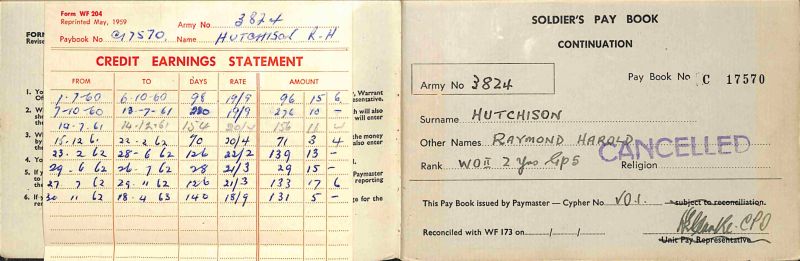 Form WF 204
Reprinted May, 1959
Army No 3824
Paybook No C17570. Name HUTCHISON R-H
CREDIT EARNINGS STATEMENT
FROM TO DAYS RATE AMOUNT
1-7-60 6-10-60 98 19/9 96 15 6
7-10-60 13-7-61 280 19/9 276 10 -
14-7-61 14-12-61 154 20/4 156 11 4
15-12-61 22-2-62 70 20/4 71 3 4
23-2-62 28-6-62 126 22/2 139 13 -
29-6-62 26-7-62 28 21/3 29 15 -
27-7-62 29-11-62 126 21/3 133 17 6
30 11 62 18-4-63 140 18/9 131 5 -
FORM
Revise
1. Yo
2. W
3. W
4. Yo
5. If y
6. If y
Warrant
esentative.
h will also
will enter
the money
also enter
Paymaster
reporting
ge for the
SOLDIER'S PAY BOOK
CONTINUATION
Army No 3824
Pay Book No C 17570
Surname HUTCHISON
Other Names RAYMOND HAROLD
CANCELLED
Rank WOII 2 Yrs Gp5
Religion
This Pay Book issued by Paymaster — Cypher No VO1. subject to reconciliation.
Reconciled with WF 173 on / /
CPO
Unit Pay Representative